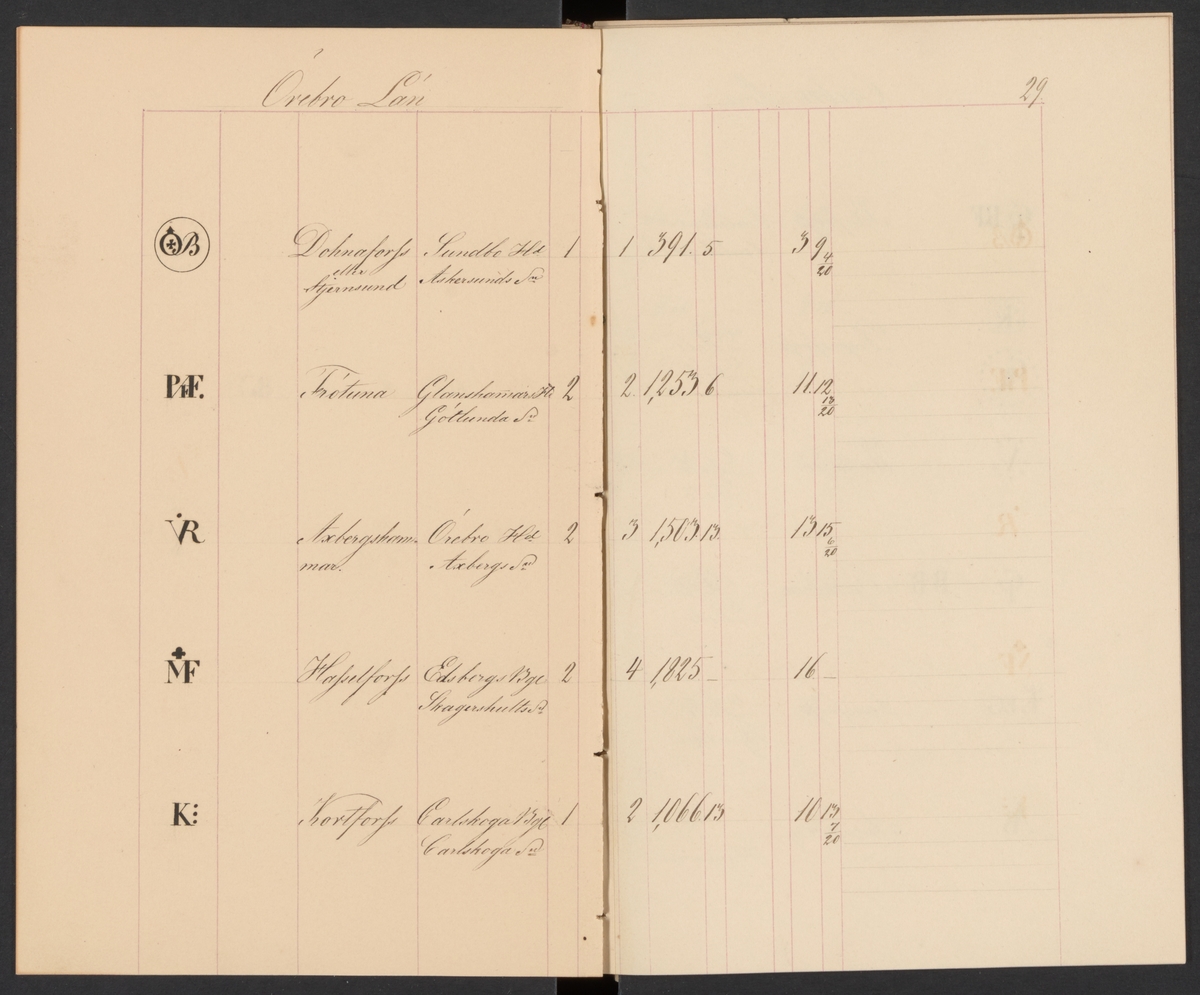 Örebro Län
29.
B Dohnaforss Sundbo Hd 1 1 391. 5 3 9 4/20
eller
Stjernsund Askersunds Sn
PHF. Frötuna Glanshammars Hd 2 2. 1,253 6 11. 12 13/20
Götlunda Sn
VR Axbergsham- Örebro Hd 2 3 1,503. 13. 13 15 6/20
mar. Axbergs Sn
MF Hasselforss Edsbergs Bgl 2 4 1,825 – 16 –
Skagershults Sn
K: Kortforss Carlskoga Bgl 1 2 1,066 13 10 13 7/20
Carlskoga Sn